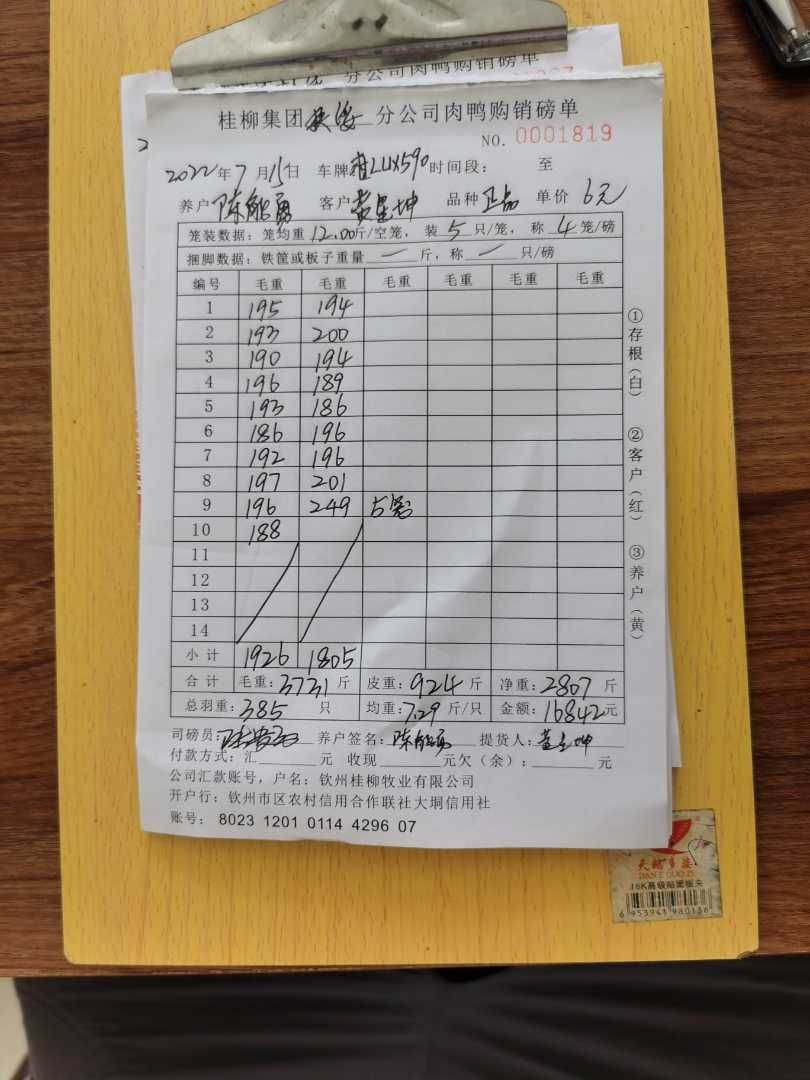 分公司肉鸭购销磅单
桂柳集团 分公司肉鸭购销磅单
NO. 0001819
2022年7月15日 车牌桂LUX590时间段: 至
养户陈能勇 客户黄星坤 品种正品 单价6元
笼装数据: 笼均重12.00斤/空笼, 装5只/笼, 称4笼/磅
捆脚数据: 铁筐或板子重量 — 斤, 称 — 只/磅
编号 毛重 毛重 毛重 毛重 毛重 毛重
1 195 194
2 193 200
3 190 194
4 196 189
5 193 186
6 186 196
7 192 196
8 197 201
9 196 249 5笼
10 188
11
12
13
14
小计 1926 1805
合计 毛重:3731斤 皮重:924斤 净重:2807斤
总羽重:385只 均重:7.29斤/只 金额:16842元
司磅员: 养户签名:陈能勇 提货人:黄星坤
付款方式: 汇 元 收现 元欠(余): 元
公司汇款账号, 户名: 钦州桂柳牧业有限公司
开户行: 钦州市区农村信用合作联社大垌信用社
账号: 8023 1201 0114 4296 07
①存根(白)
②客户(红)
③养户(黄)
TIAN E DUO ZI
16K高级贴面板夹
6 953941 980136